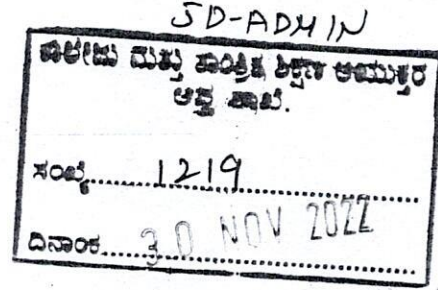 JD-ADMIN
ಕಾಲೇಜು ಮತ್ತು ತಾಂತ್ರಿಕ ಶಿಕ್ಷಣ ಆಯುಕ್ತರ
ಆಪ್ತ ಶಾಖೆ.
ಸಂಖ್ಯೆ 1219
ದಿನಾಂಕ 30 NOV 2022